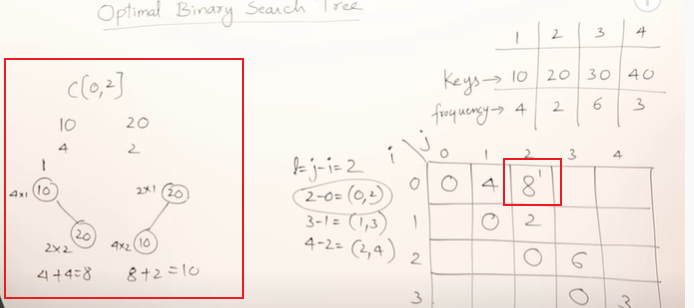 Optimal Binary Search Tree
1 2 3 4
Keys→ 10 20 30 40
frequency→ 4 2 6 3
C[0,2]
10 20
4 2
1
4x1 10 2x1 20
20 10
2x2 4x2
4+4=8 8+2=10
l=j-i=2
2-0=(0,2)
3-1=(1,3)
4-2=(2,4)
i j 0 1 2 3 4
0 0 4 8¹
1 0 2
2 0 6
3 0 3